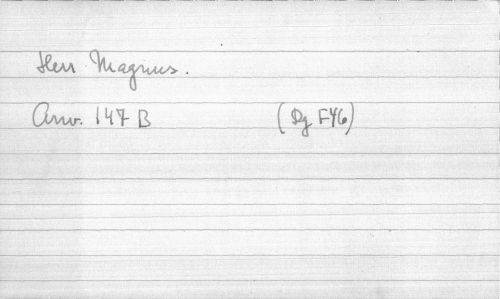 Herr Magnus.
Arw. 147 B (Dg F46)